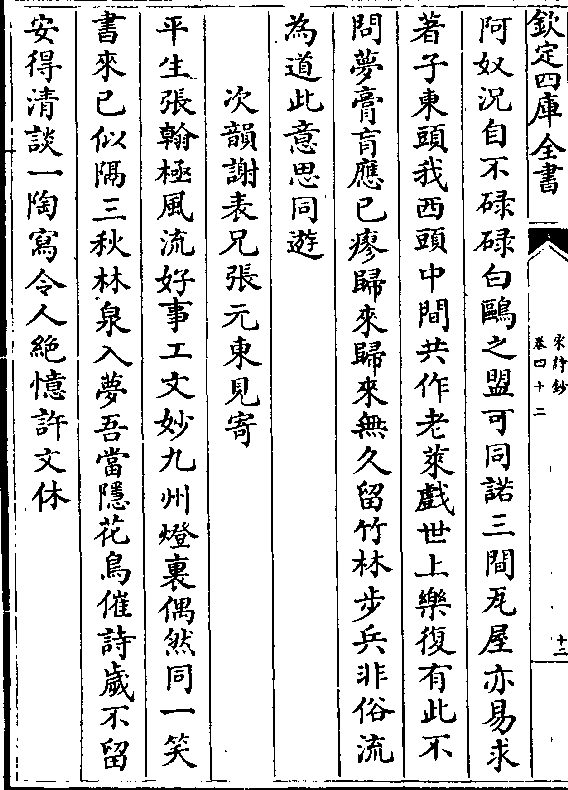 欽定四庫全書
宋詩鈔
卷四十二
十二
阿奴況自不碌碌白鷗之盟可同諾三間瓦屋亦易求
著子東頭我西頭中間共作老萊戲世上樂復有此不
問夢膏肓應已瘳歸來歸來無久留竹林步兵非俗流
為道此意思同遊
次韻謝表兄張元東見寄
平生張翰極風流好事工文妙九州燈裏偶然同一笑
書來已似隔三秋林泉入夢吾當隱花鳥催詩歲不留
安得清談一陶寫令人絶憶許文休